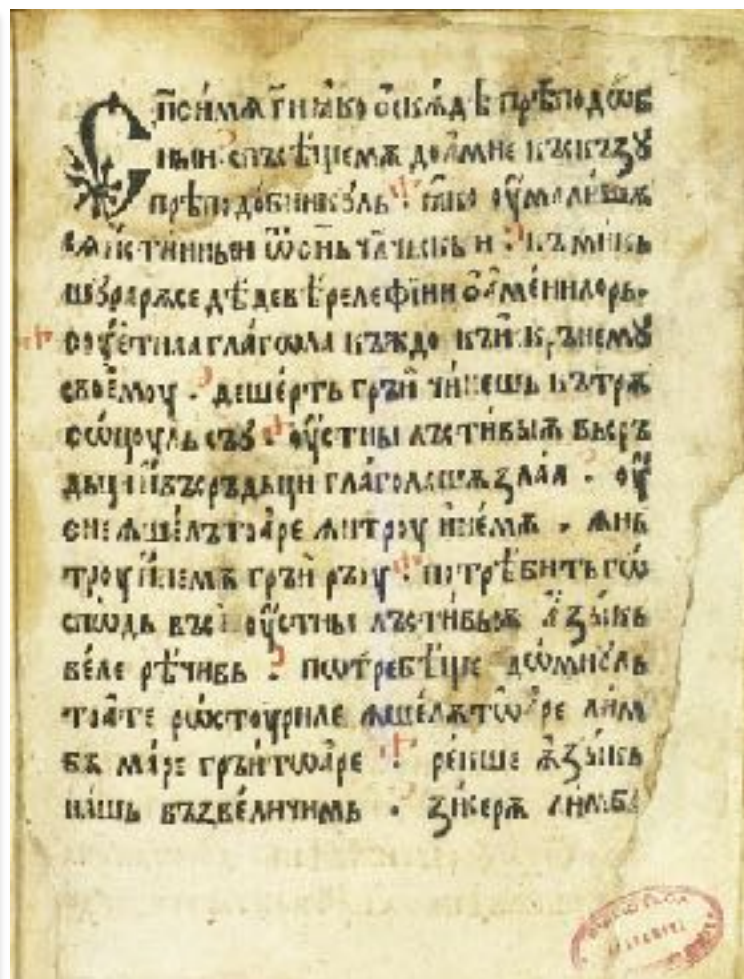 Сп҃си мѧ г҃и ꙗко ѡскѫдѣ прѣподѡб
ный спъсѣще мѫ доамне къ скъзу
прѣподобникуль ꙗко оумалишѫ
сѧ истинныи ѿ сн҃ь чл҃чьскыи къ микь
шурарѫсе дѣдевѣреле фіии ѡаменилорь
соуетнаа глагола къждо къи скрънему
своемоу дешерть грѫи чинешь кътрѫ
соцоуль съу оустны лъстивыѫ вьсръ
дьци и въ сръдьци глаголашѫ злаа оу
сне ѫшелътоаре ꙟтроу инемѫ ꙟнь
троу инемѫ грѫи рѫоу потрѣбить го
сподь въсѧ оустны лъстивыѫ ѧзыкь
веле рѣчивь потребѣще домнуль
тоате ростоуриле ꙟшелѫтоаре лим
бѫ маре грѫитоаре рекше ѧзыкь
нашь възвеличимь зикерѫ лимба